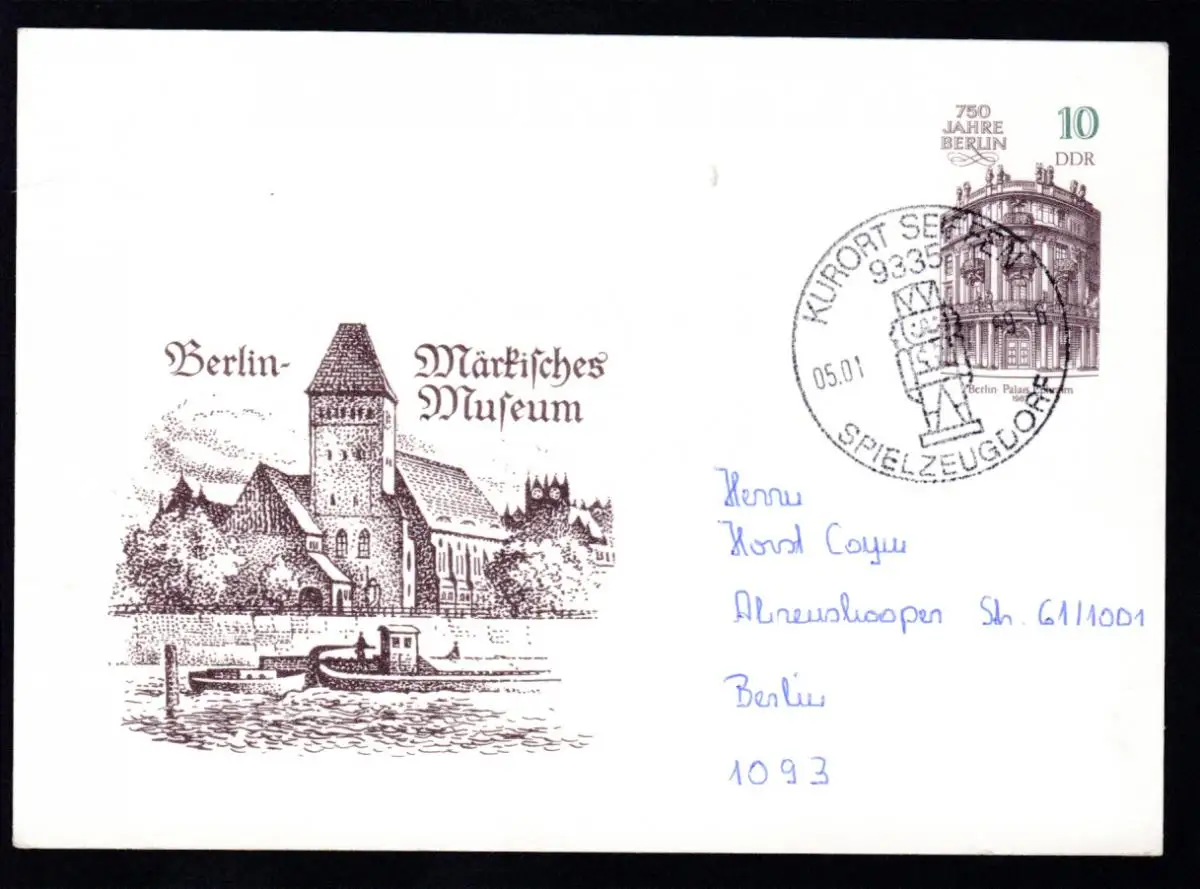 750
JAHRE
BERLIN
10
DDR
KURORT SEIFFEN
9335
05.01 89-6
SPIELZEUGDORF
Berlin · Palais Ephraim
Berlin- Märkisches
Museum
Herrn
Horst
Ahrenshooper Str. 61/1001
Berlin
1093